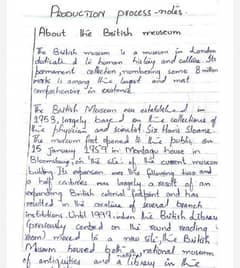 PRODUCTION process-notes.
About the British meuseum
The British museum is a museum in London
dedicated to human history and culture. Its
permanent collection, numbering some 8 million
works is among the largest and most
comprehensive in existence
The British Museum was established in
1753, largely based on the collections of
the physician and scientist Sir Hans Sloane.
The museum first opened to the public on
15 january 1759 in Montagu house in
Bloomsbury, on the site of the current museum
building. Its expansion over the following two and
a half centuries was largely a result of an
expanding British colonial footprint and has
resulted in the creation of several branch
institutions. Until 1997, when the British Library
(previously centred on the round reading
room) moved to a new site, the British
Museum housed both a national museum
of antiquities and a library in the